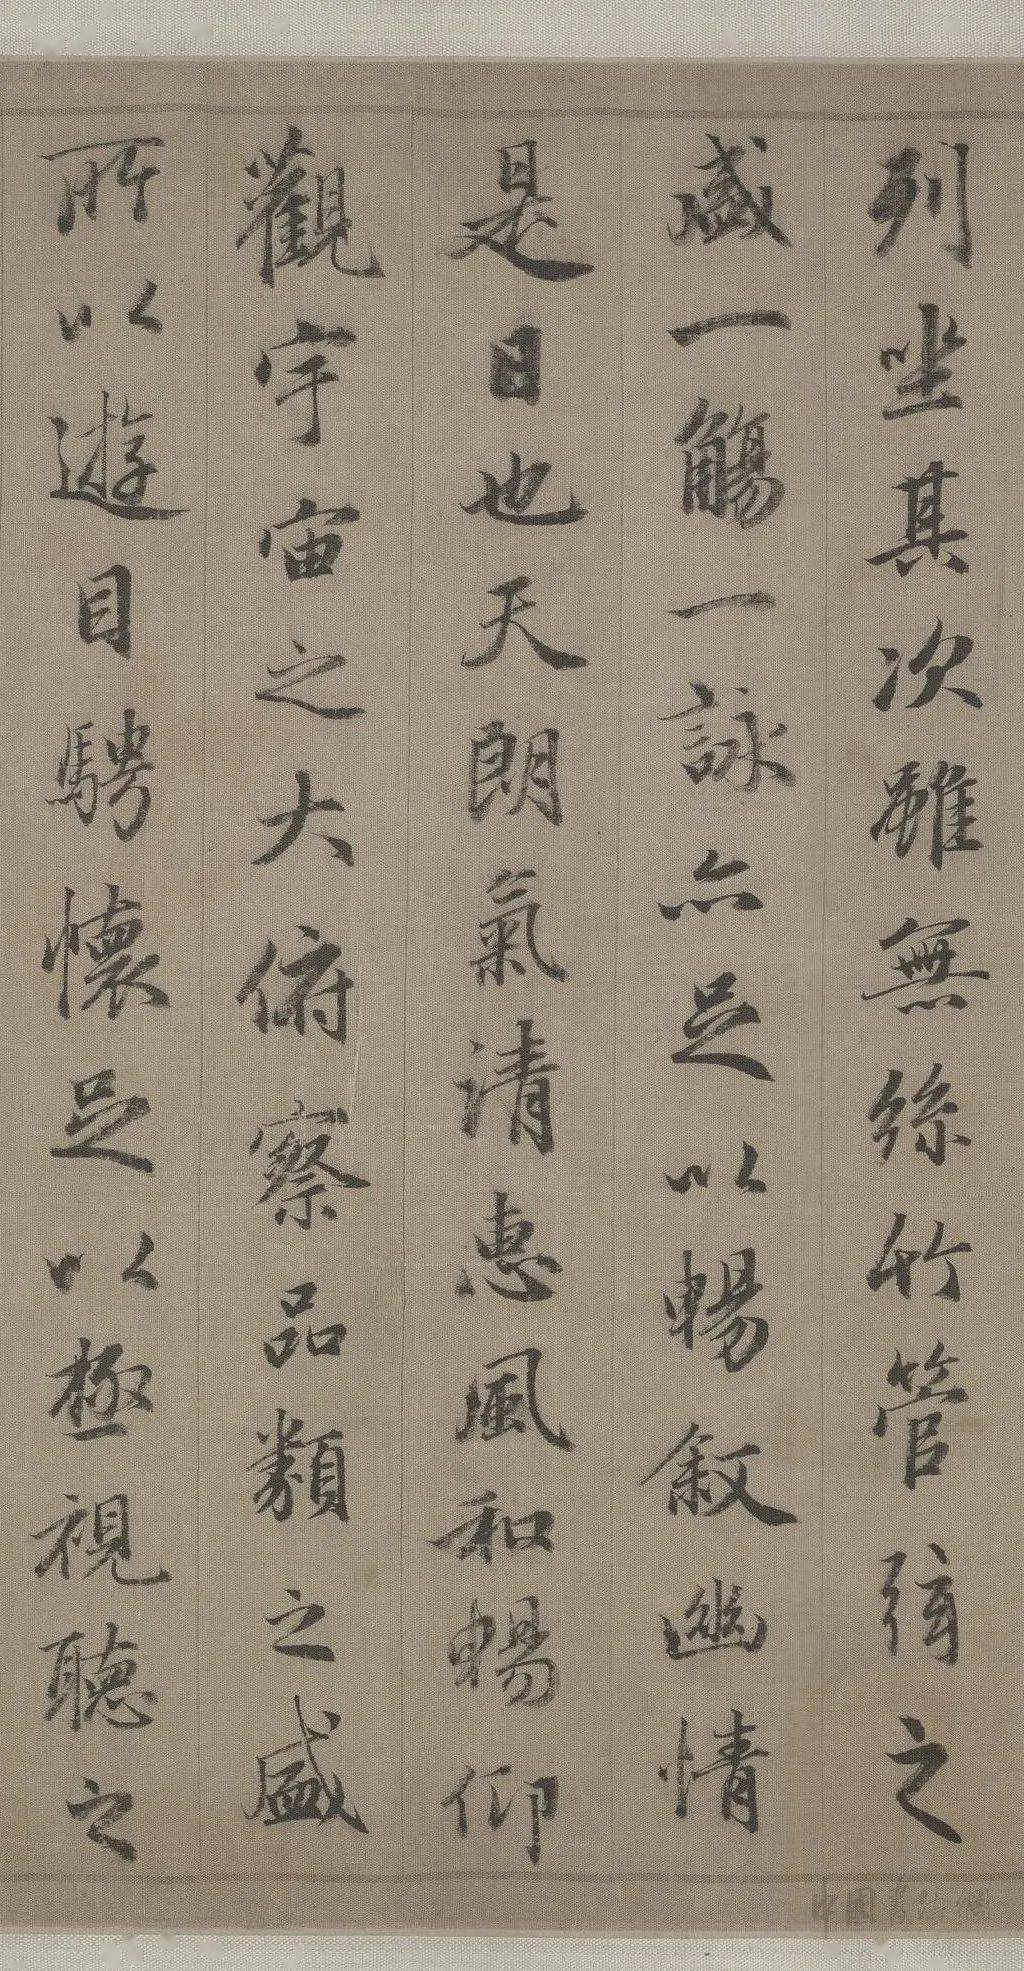 列坐其次雖無絲竹管弦之
盛一觴一詠亦足以暢敘幽情
是日也天朗氣清惠風和暢仰
觀宇宙之大俯察品類之盛
所以遊目騁懷足以極視聽之
中國書法網